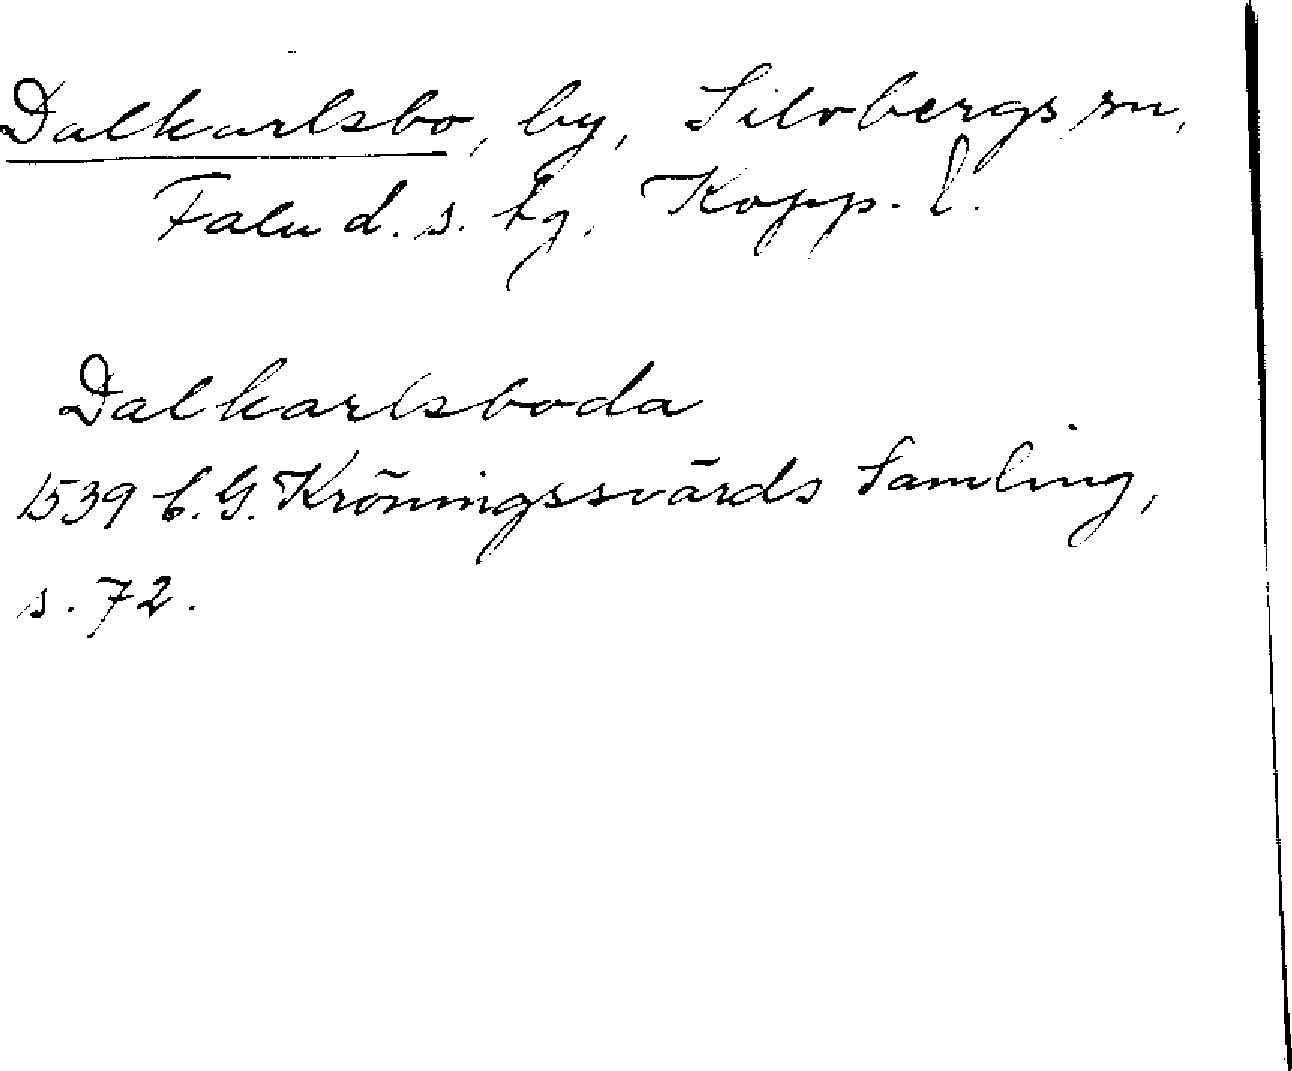 Dalkarlsbo, by, Silvbergs sn,
Falu d. s. tg. Kopp. l.
Dalkarlsboda
1539 C. G. Kröningssvärds Samling,
s. 72.